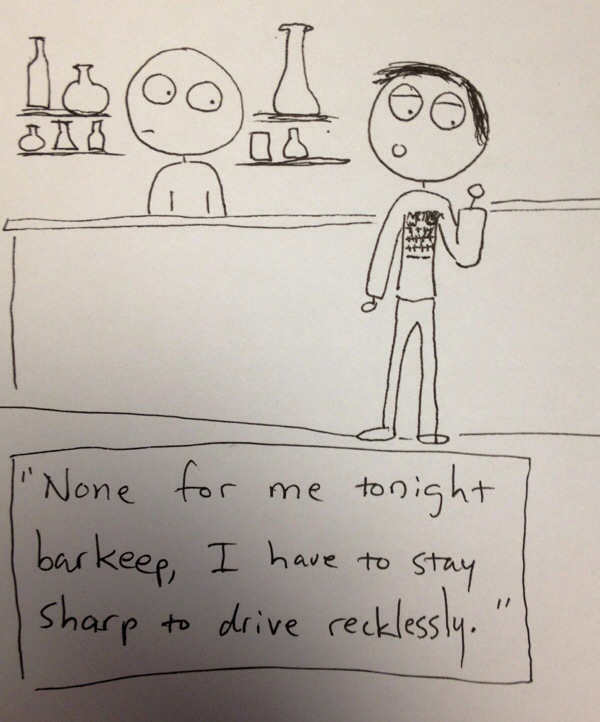 "None for me tonight
barkeep, I have to stay
sharp to drive recklessly."